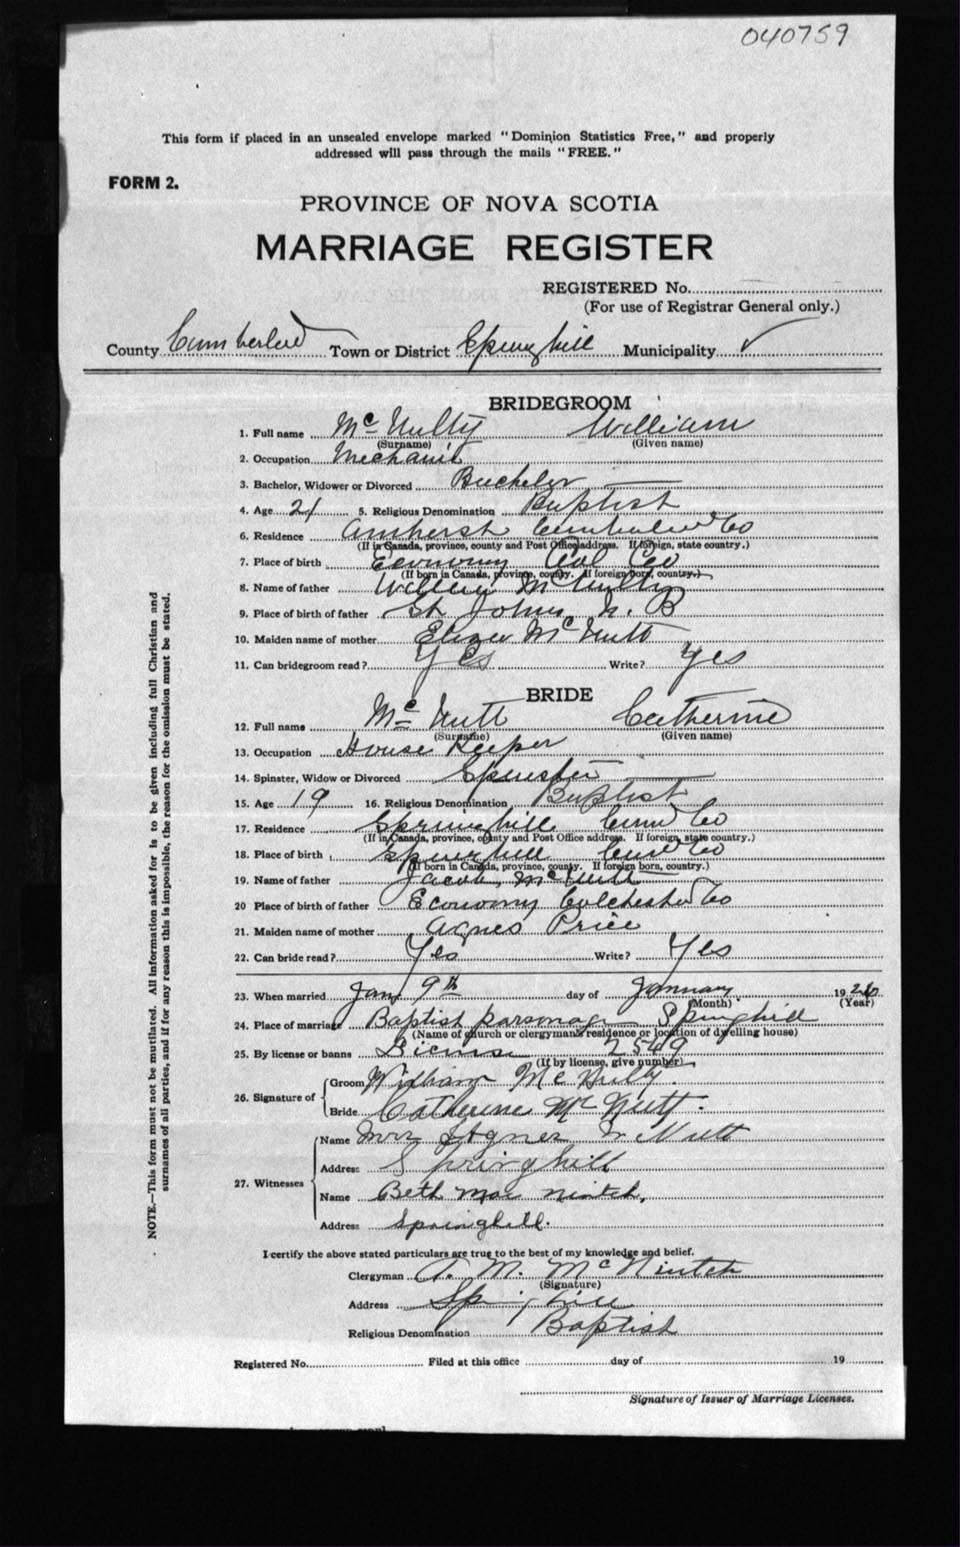 040759
This form if placed in an unsealed envelope marked "Dominion Statistics Free," and properly
addressed will pass through the mails "FREE."
FORM 2.
PROVINCE OF NOVA SCOTIA
MARRIAGE REGISTER
REGISTERED No.
(For use of Registrar General only.)
County Cumberland Town or District Springhill Municipality ✓
BRIDEGROOM
1. Full name McNulty William
(Surname) (Given name)
2. Occupation Mechanic
3. Bachelor, Widower or Divorced Bachelor
4. Age 21 5. Religious Denomination Baptist
6. Residence Amherst Cumberland Co
(If in Canada, province, county and Post Office address. If foreign, state country.)
7. Place of birth Economy Col Co
(If born in Canada, province, county. If foreign born, country.)
8. Name of father William McNulty
9. Place of birth of father St Johns N. B
10. Maiden name of mother Eliza McNutt
11. Can bridegroom read? Yes Write? Yes
BRIDE
12. Full name McNutt Catherine
(Surname) (Given name)
13. Occupation House Keeper
14. Spinster, Widow or Divorced Spinster
15. Age 19 16. Religious Denomination Baptist
17. Residence Springhill Cum Co
(If in Canada, province, county and Post Office address. If foreign, state country.)
18. Place of birth Springhill Cum Co
(If born in Canada, province, county. If foreign born, country.)
19. Name of father Jacob McNutt
20 Place of birth of father Economy Colchester Co
21. Maiden name of mother Agnes Price
22. Can bride read? Yes Write? Yes
23. When married Jan 9th day of January 1926
(Month) (Year)
24. Place of marriage Baptist parsonage Springhill
(Name of church or clergyman's residence or location of dwelling house)
25. By license or banns License 2549
(If by license, give number)
26. Signature of
Groom William McNulty.
Bride Catherine Mc Nutt.
27. Witnesses
Name Mrs Agnes McNutt
Address Springhill
Name Beth Mac nintch,
Address Springhill.
I certify the above stated particulars are true to the best of my knowledge and belief.
Clergyman A. M. McNintch
(Signature)
Address Springhill
Religious Denomination Baptist
Registered No. Filed at this office day of 19
Signature of Issuer of Marriage Licenses.
NOTE.—This form must not be mutilated. All information asked for is to be given including full Christian and
surnames of all parties, and if for any reason this is impossible, the reason for the omission must be stated.